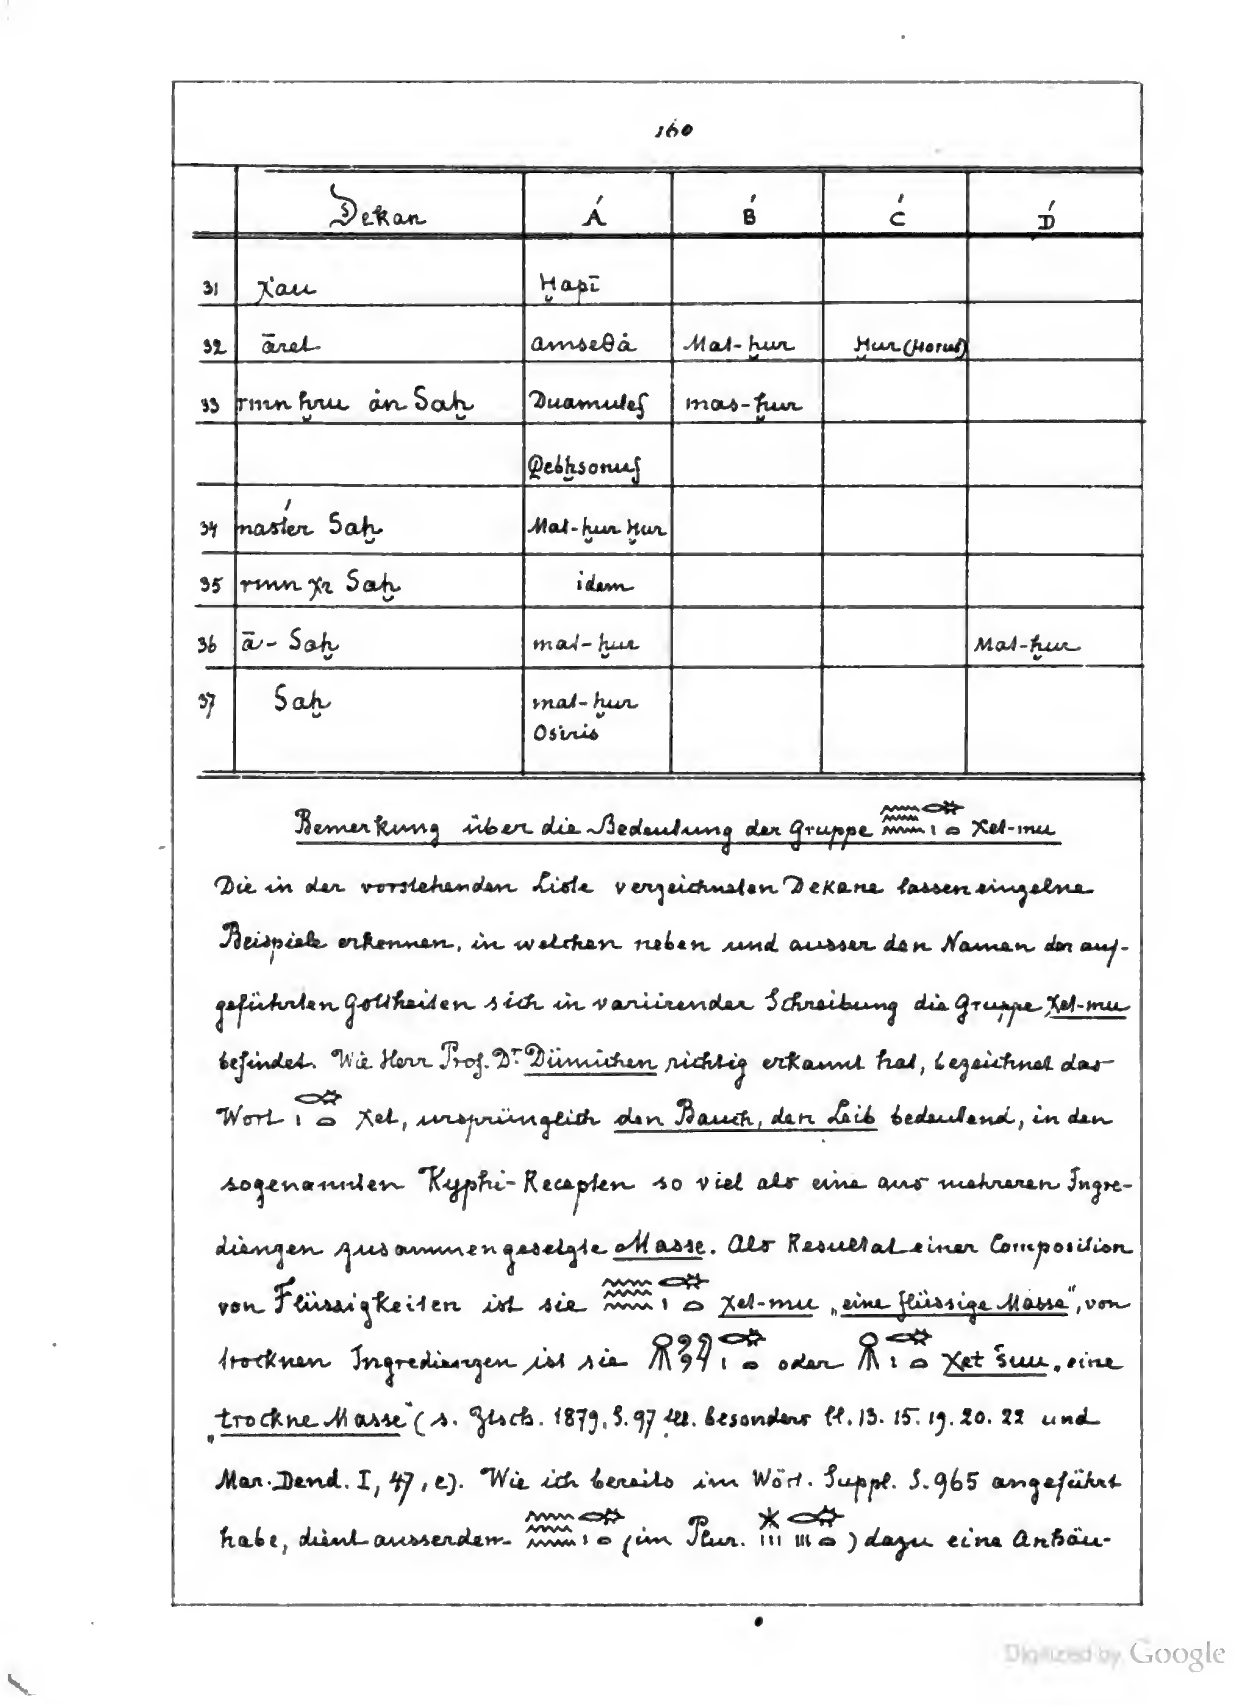 160
Dekan Á B́ Ć D́
31 χau Ḥapī
32 āret amseθȧ Mat-ḥur Ḥur (Horus)
33 rmn ḥru ȧn Saḥ Duamutef mas-ḥur
Qebḥsonuf
34 mast́er Saḥ Mat-ḥur Ḥur
35 rmn χr Saḥ idem
36 ā- Saḥ mat-ḥur Mat-ḥur
37 Saḥ mat-ḥur
Osiris
Bemerkung über die Bedeutung der Gruppe χet-mu
Die in der vorstehenden Liste verzeichneten Dekane lassen einzelne
Beispiele erkennen, in welchen neben und ausser den Namen der auf-
geführten Gottheiten sich in variirender Schreibung die Gruppe χet-mu
befindet. Wie Herr Prof. Dr. Dümichen richtig erkannt hat, bezeichnet das
Wort χet, ursprünglich den Bauch, den Leib bedeutend, in den
sogenannten Kyphi-Recepten so viel als eine aus mehreren Ingre-
dienzen zusammengesetzte Masse. Als Resultat einer Composition
von Flüssigkeiten ist sie χet-mu „eine flüssige Masse", von
trocknen Ingredienzen ist sie oder χet šuu „eine
trockne Masse" (s. Ztsch. 1879, S. 97 fll. besonders ll. 13. 15. 19. 20. 22 und
Mar. Dend. I, 47, e). Wie ich bereits im Wört. Suppl. S. 965 angeführt
habe, dient ausserdem (im Plur. ) dazu eine Anhäu-
Digitized by Google